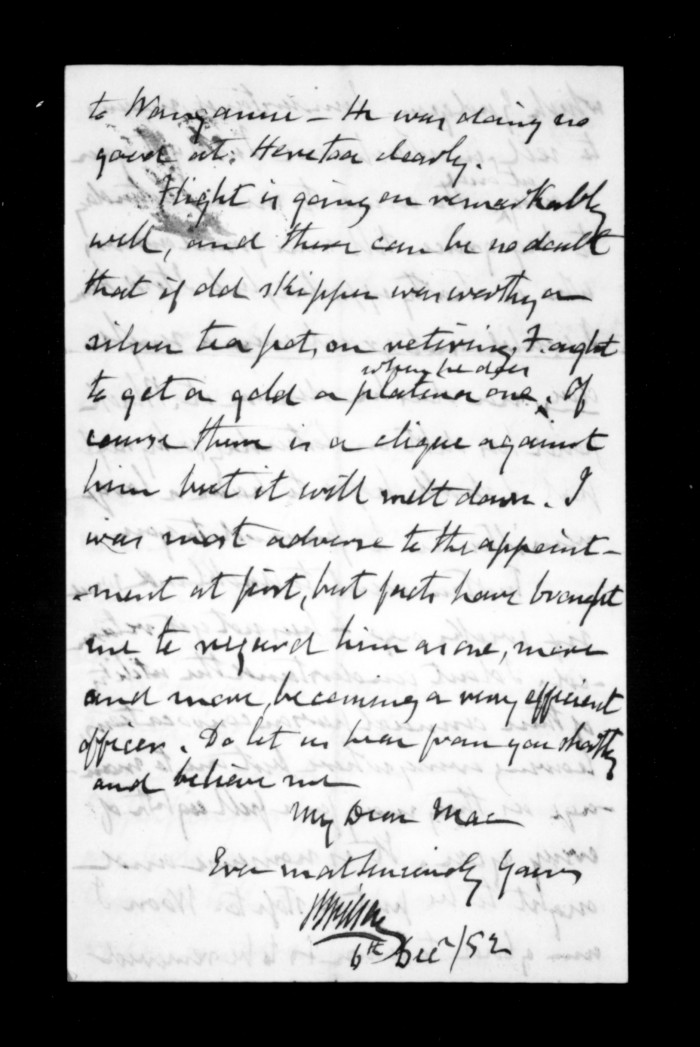 to Wanganui – He was doing no
good at. Heretoa clearly.
Flight is going on remarkably
well, and there can be no doubt
that if old skipper was worthy a
silver tea pot, on retiring, F. ought
when he does
to get a gold or platina one. Of
course there is a clique against
him but it will melt down. I
was most adverse to the appoint-
-ment at first, but facts have brought
me to regard him as one, more
and more, becoming a very efficient
officer. Do let us hear from you shortly
and believe me
My Dear Mac
Ever most sincerely Yours
6th Decr/52